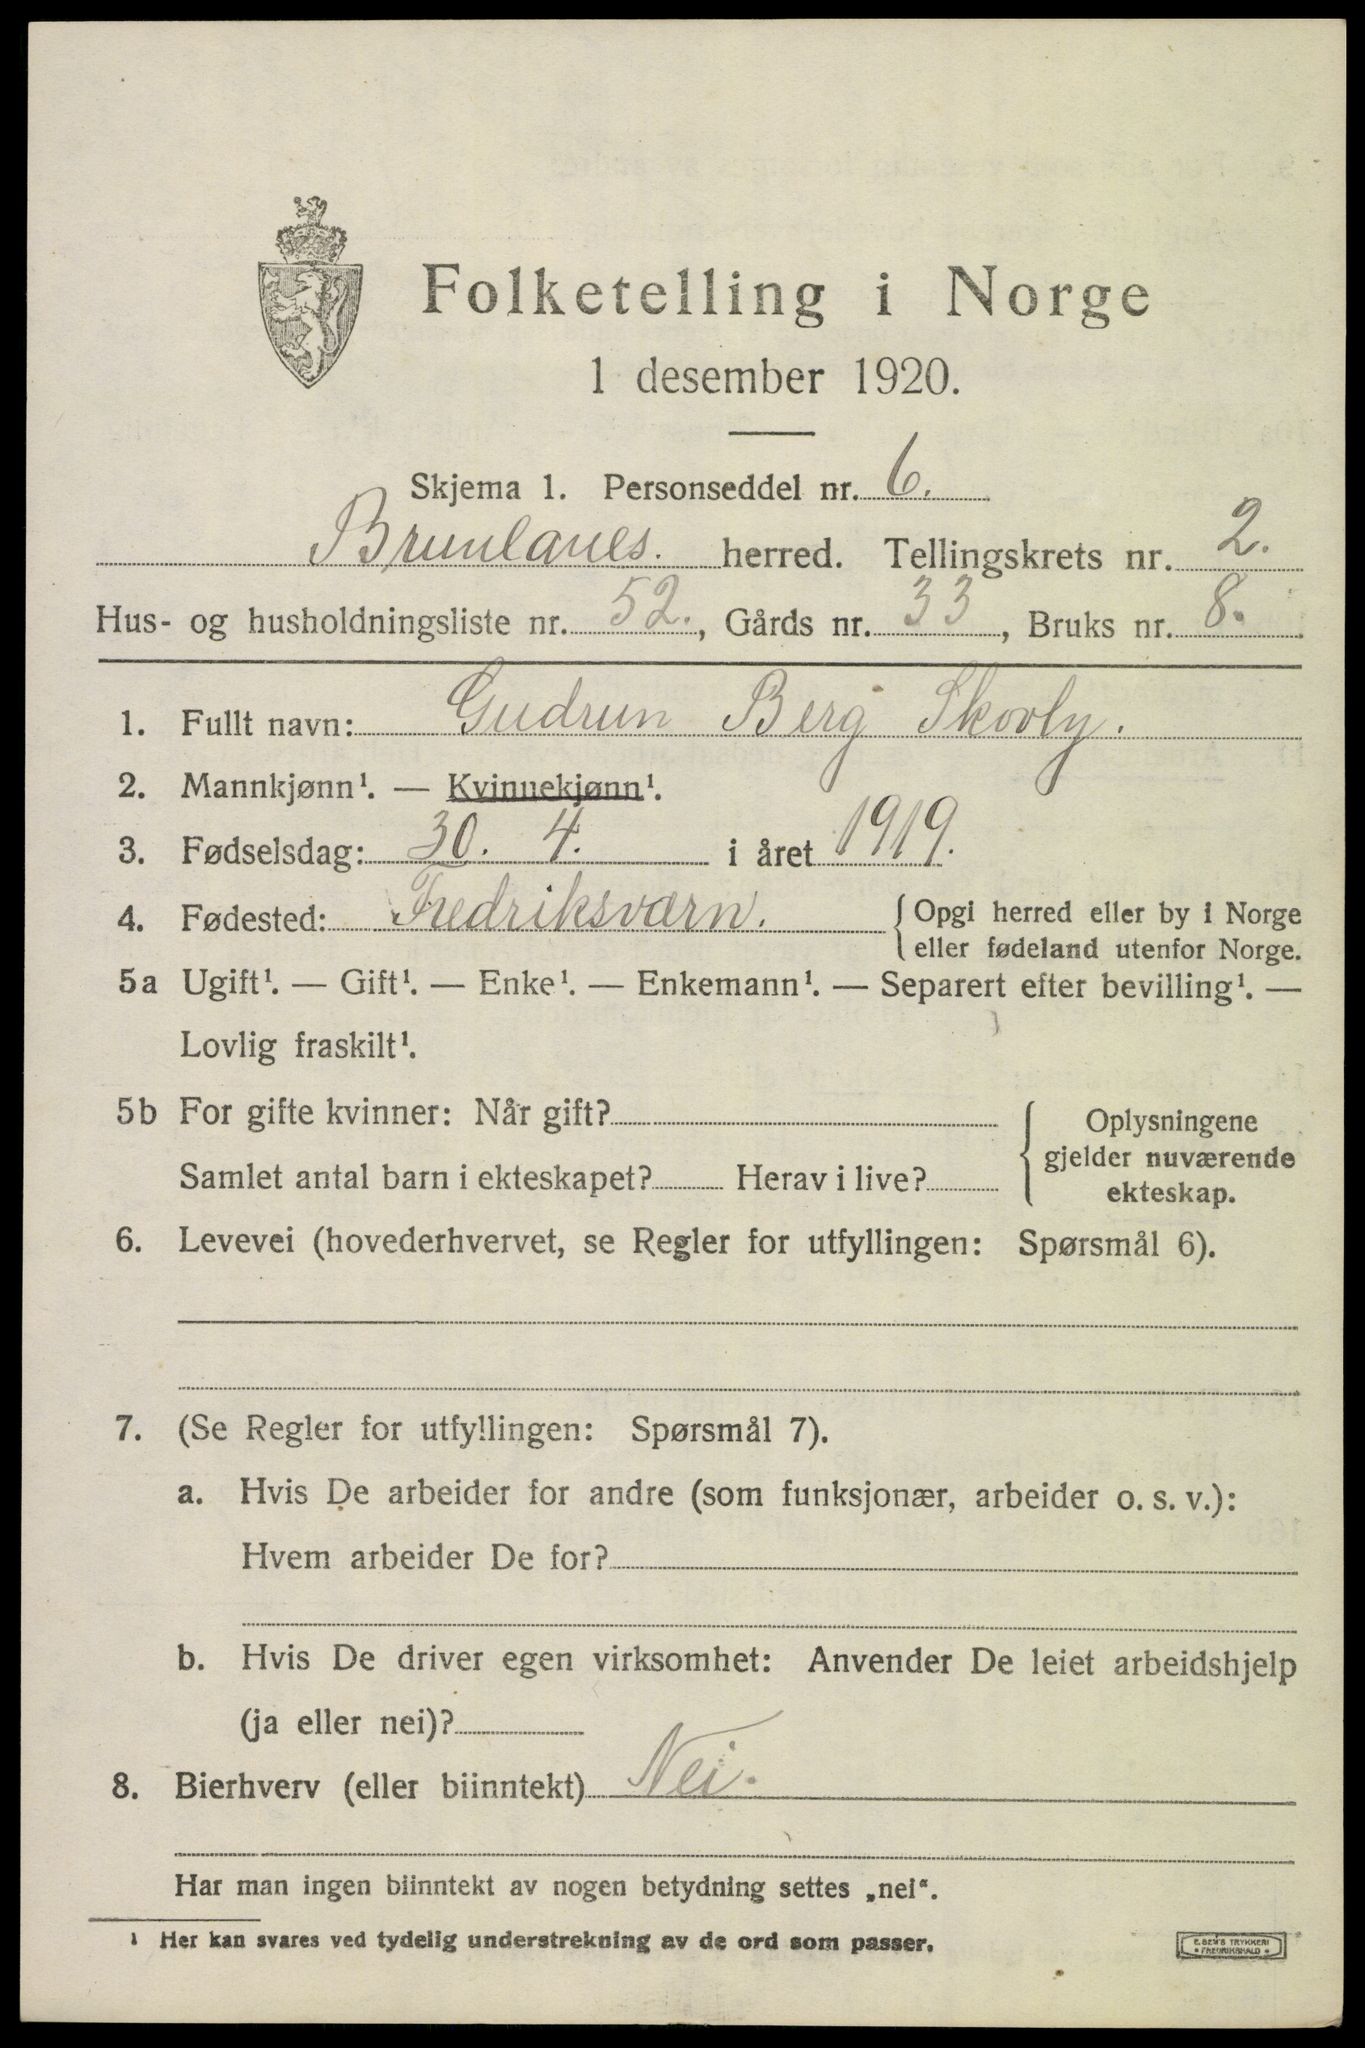 Folketelling i Norge
1 desember 1920.
Skjema 1. Personseddel nr. 6.
Brunlanes. herred. Tellingskrets nr. 2.
Hus- og husholdningsliste nr. 52., Gårds nr. 33, Bruks nr. 8.
1. Fullt navn: Gudrun Berg Skovly.
2. Mannkjønn¹. — Kvinnekjønn¹.
3. Fødselsdag: 30. 4. i året 1919.
4. Fødested: Fredriksværn. { Opgi herred eller by i Norge
eller fødeland utenfor Norge.
5a Ugift¹. — Gift¹. — Enke¹. — Enkemann¹. — Separert efter bevilling¹. —
Lovlig fraskilt¹.
5b For gifte kvinner: Når gift?
Samlet antal barn i ekteskapet? Herav i live?
{ Oplysningene
gjelder nuværende
ekteskap.
6. Levevei (hovederhvervet, se Regler for utfyllingen: Spørsmål 6).
7. (Se Regler for utfyllingen: Spørsmål 7).
a. Hvis De arbeider for andre (som funksjonær, arbeider o. s. v.):
Hvem arbeider De for?
b. Hvis De driver egen virksomhet: Anvender De leiet arbeidshjelp
(ja eller nei)?
8. Bierhverv (eller biinntekt) Nei.
Har man ingen biinntekt av nogen betydning settes „nei“.
¹ Her kan svares ved tydelig understrekning av de ord som passer.
E. SEM'S TRYKKERI
• FREDRIKSHALD •